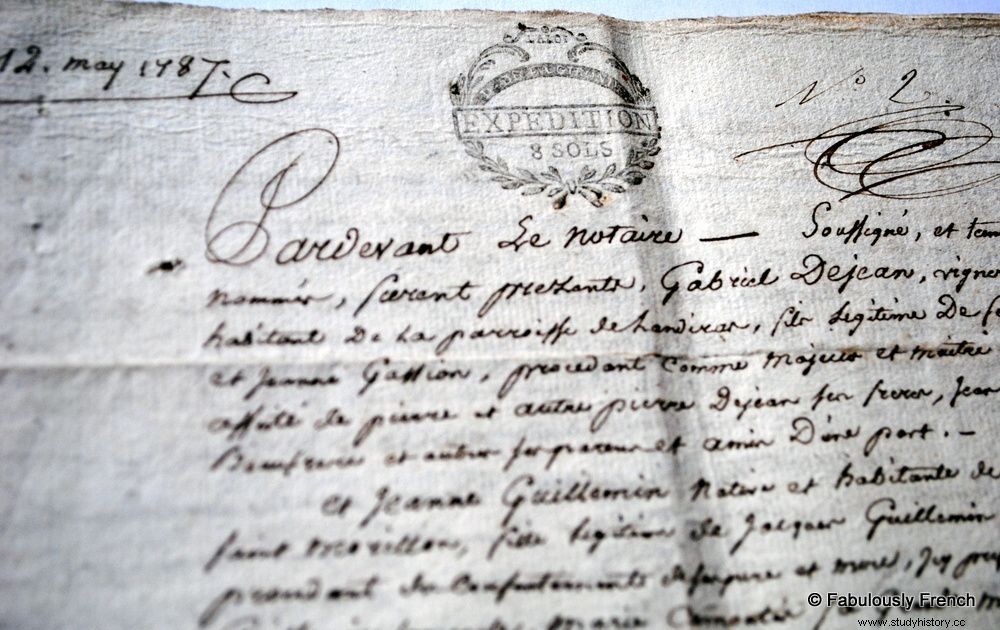 12. may 1787.
EXPEDITION
8 SOLS
No 2.
Pardevant Le notaire — Soussigné, et tem
nommés, furent presents, Gabriel Dejean, vigner
habitant De La parroisse de Landiras, fils Legitime De fe
et Jeanne Gassion, procedant Comme Majeur et maitre
assisté de pierre et autre pierre Dejean ses freres, Jean
Beaufrere et autres ses parens et amis D'une part. —
et Jeanne Guillemin Native et habitante de
saint morillon, fille Legitime de Jacques Guillemin
procedant du Consentement de ses pere et mere, Icy pre
Marie
© Fabulously French
www.studyhistory.cc